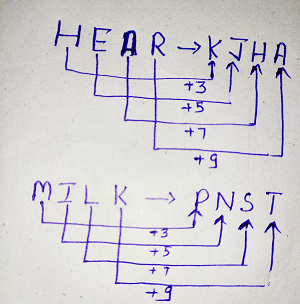 HEAR → KJHA
+3
+5
+7
+9
MILK → PNST
+3
+5
+7
+9